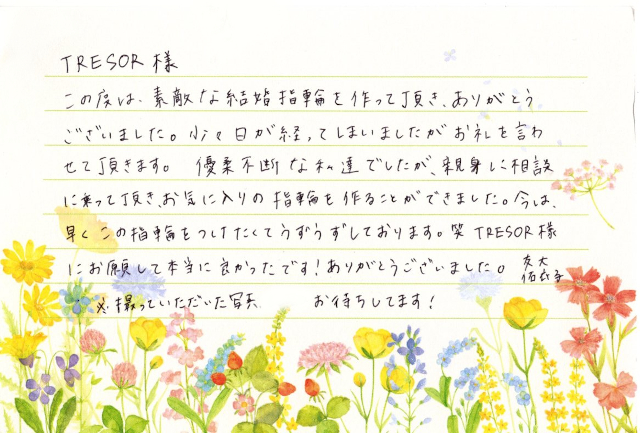 TRESOR 様
この度は、素敵な結婚指輪を作って頂き、ありがとう
ございました。少々日が経ってしまいましたがお礼を言わ
せて頂きます。 優柔不断な私達でしたが、親身に相談
に乗って頂き、お気に入りの指輪を作ることができました。今は、
早くこの指輪をつけたくてうずうずしております。笑 TRESOR様
にお願いして本当に良かったです!ありがとうございました。
友大
佑衣子
※撮っていただいた写真 お待ちしてます!